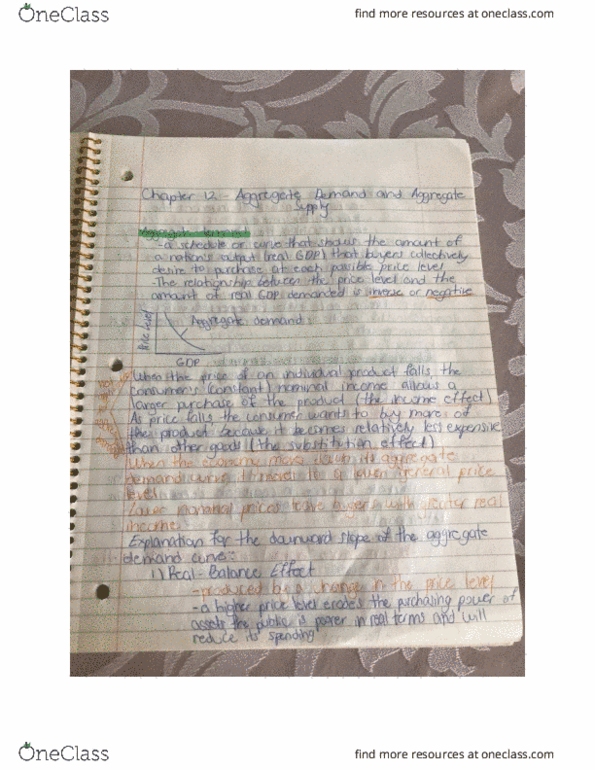 OneClass
find more resources at oneclass.com
Chapter 12 - Aggregate Demand and Aggregate
Supply
Aggregate demand
-a schedule or curve that shows the amount of
a nation's output (real GDP) that buyers collectively
desire to purchase at each possible price level
-The relationship between the price level and the
amount of real GDP demanded is inverse or negative
Price level
Aggregate demand
GDP
When the price of an individual product falls the
consumer's (constant) nominal income allows a
larger purchase of the product (the income effect)
As price falls, the consumer wants to buy more of
the product because it becomes relatively less expensive
than other goods (the substitution effect)
When the economy moves down its aggregate
demand curve it moves to a lower general price
level
income
Explanation for the downward slope of the aggregate
demand curve:
1) Real-Balance Effect
-produced by a change in the price level
-a higher price level erodes the purchasing power of
assets the public is poorer in real terms and will
reduce its spending
OneClass
find more resources at oneclass.com